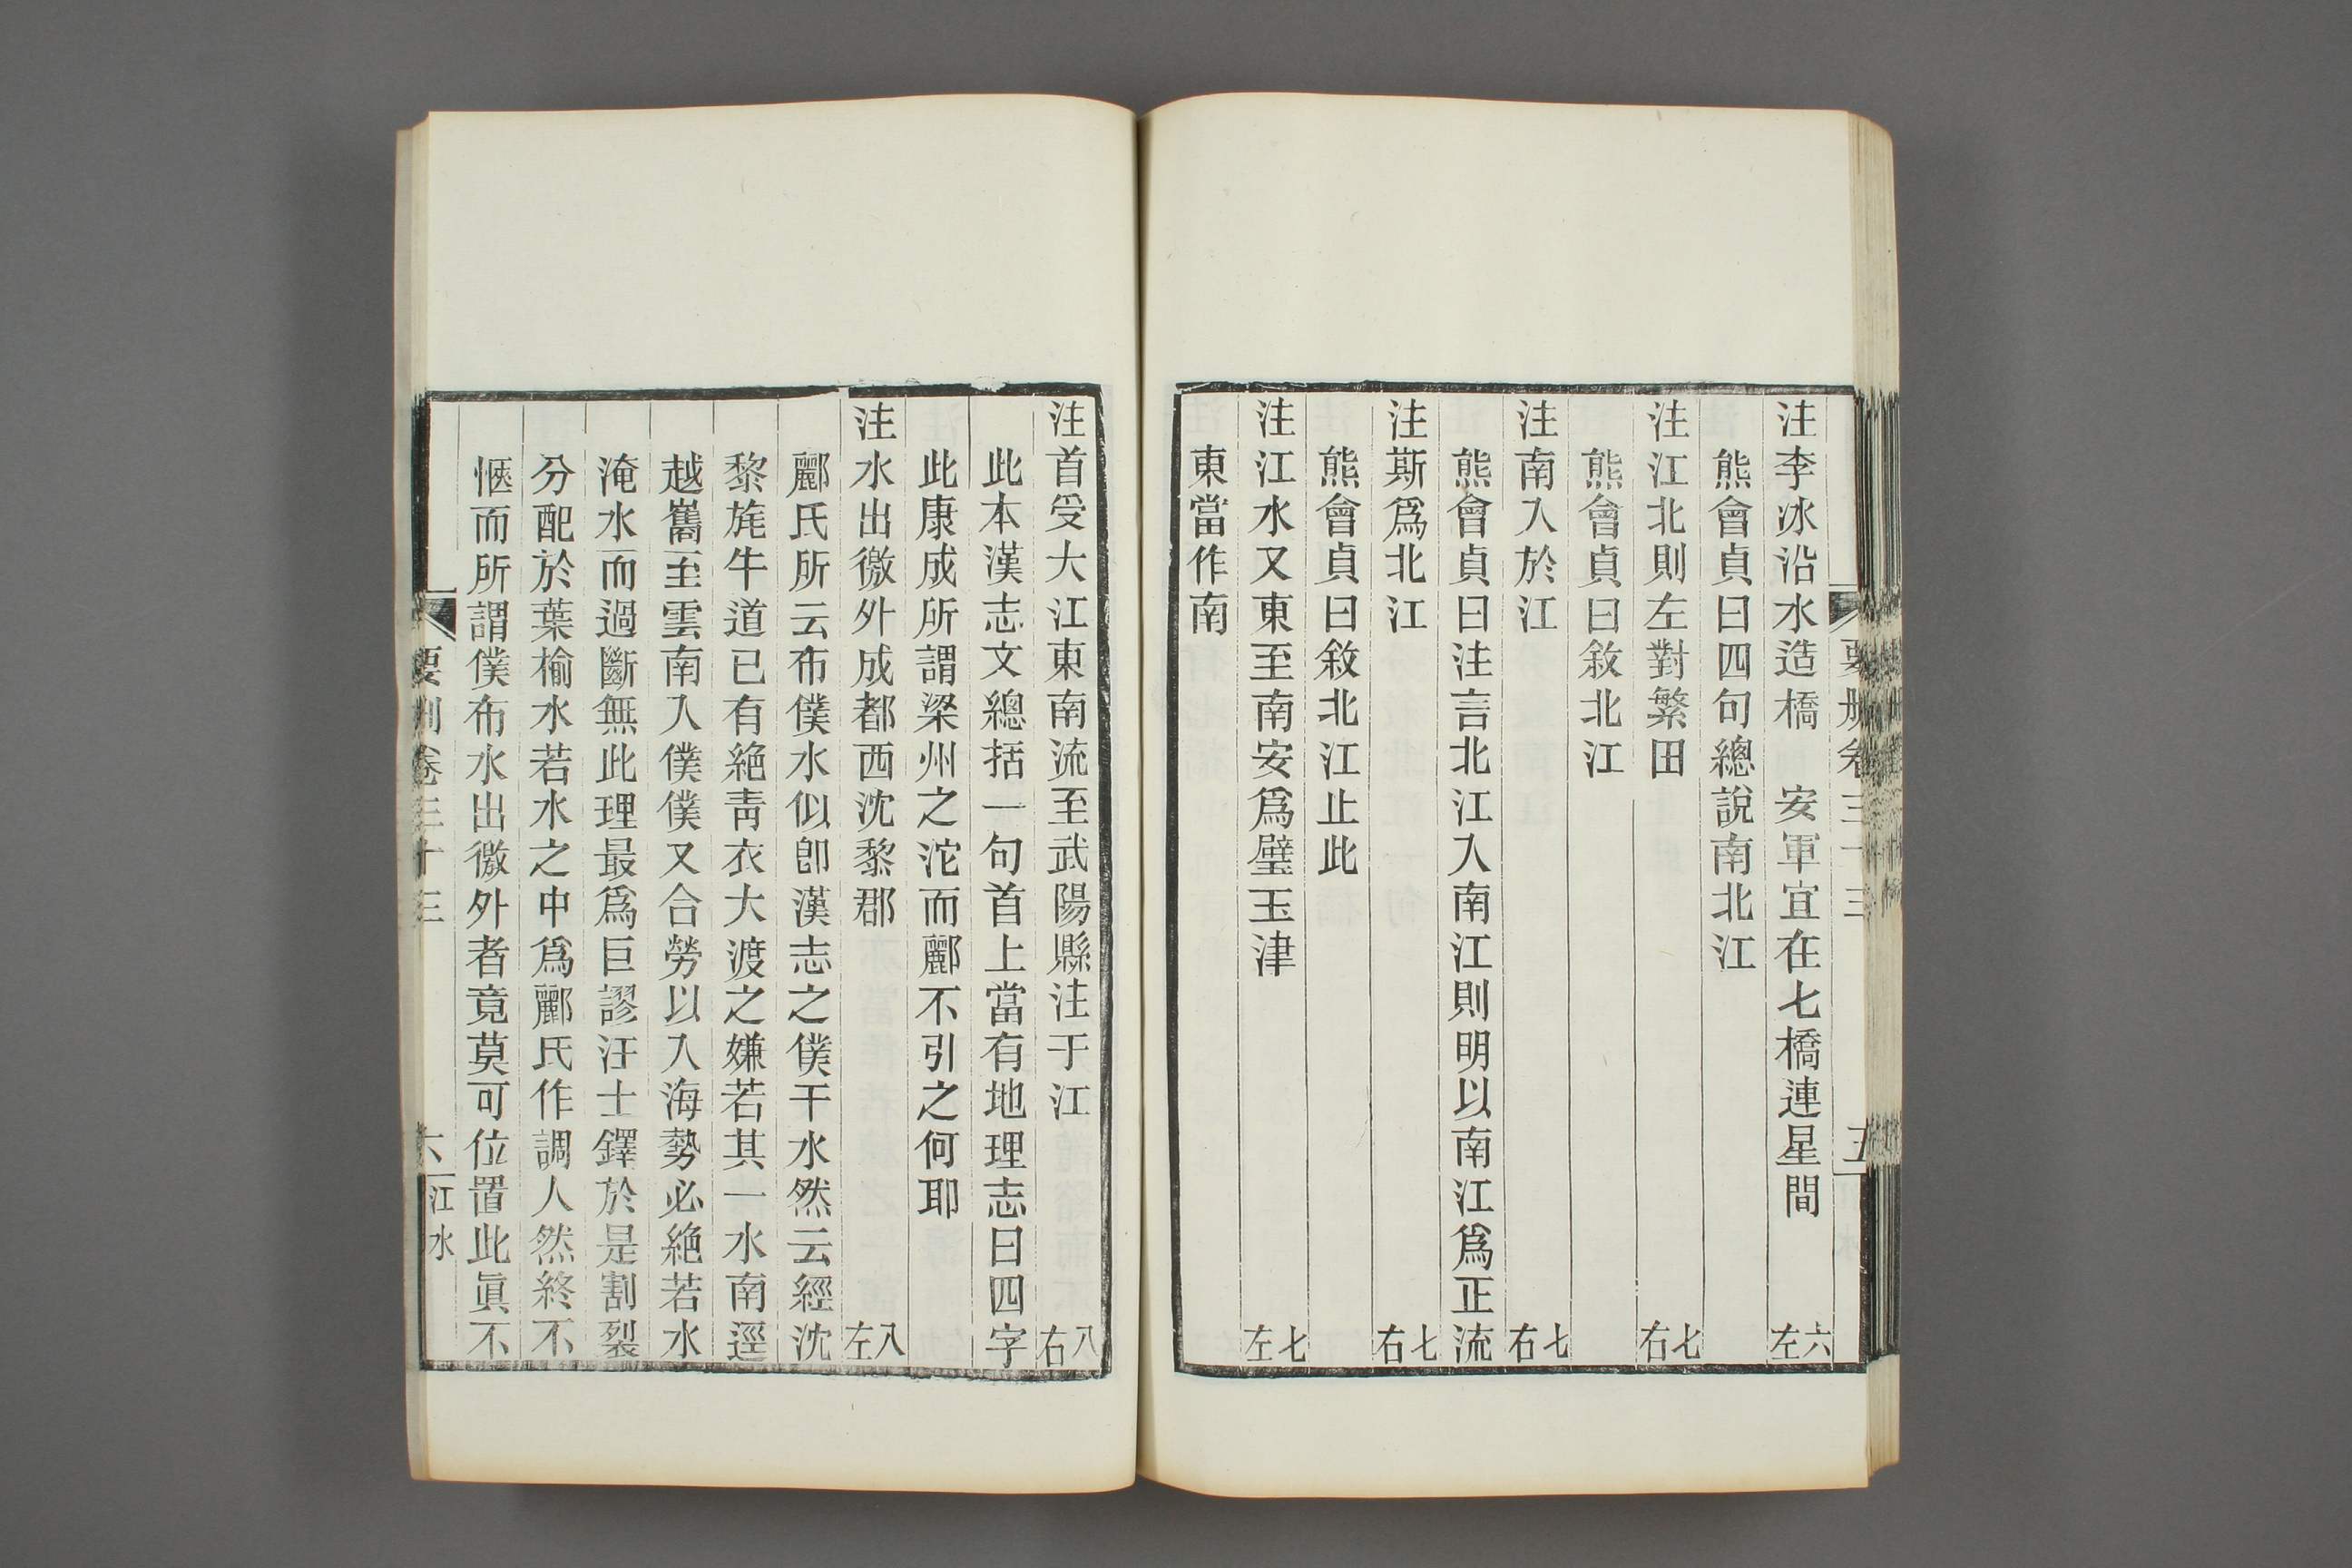 注李冰沿水造橋　安軍宜在七橋連星間　六左
熊會貞曰四句總說南北江
注江北則左對繁田　七右
熊會貞曰敘北江
注南入於江　七右
熊會貞曰注言北江入南江則明以南江爲正流
注斯爲北江　七右
熊會貞曰敘北江止此
注江水又東至南安爲璧玉津　七左
東當作南
注首受大江東南流至武陽縣注于江　八右
此本漢志文總括一句首上當有地理志曰四字
此康成所謂梁州之沱而酈不引之何耶
注水出徼外成都西沈黎郡　八左
酈氏所云布僕水似卽漢志之僕干水然云經沈
黎旄牛道已有絶靑衣大渡之嫌若其一水南逕
越巂至雲南入僕僕又合勞以入海勢必絶若水
淹水而過斷無此理最爲巨謬汪士鐸於是割裂
分配於葉榆水若水之中爲酈氏作調人然終不
愜而所謂僕布水出徼外者竟莫可位置此眞不
要刪卷三十三　六　江水